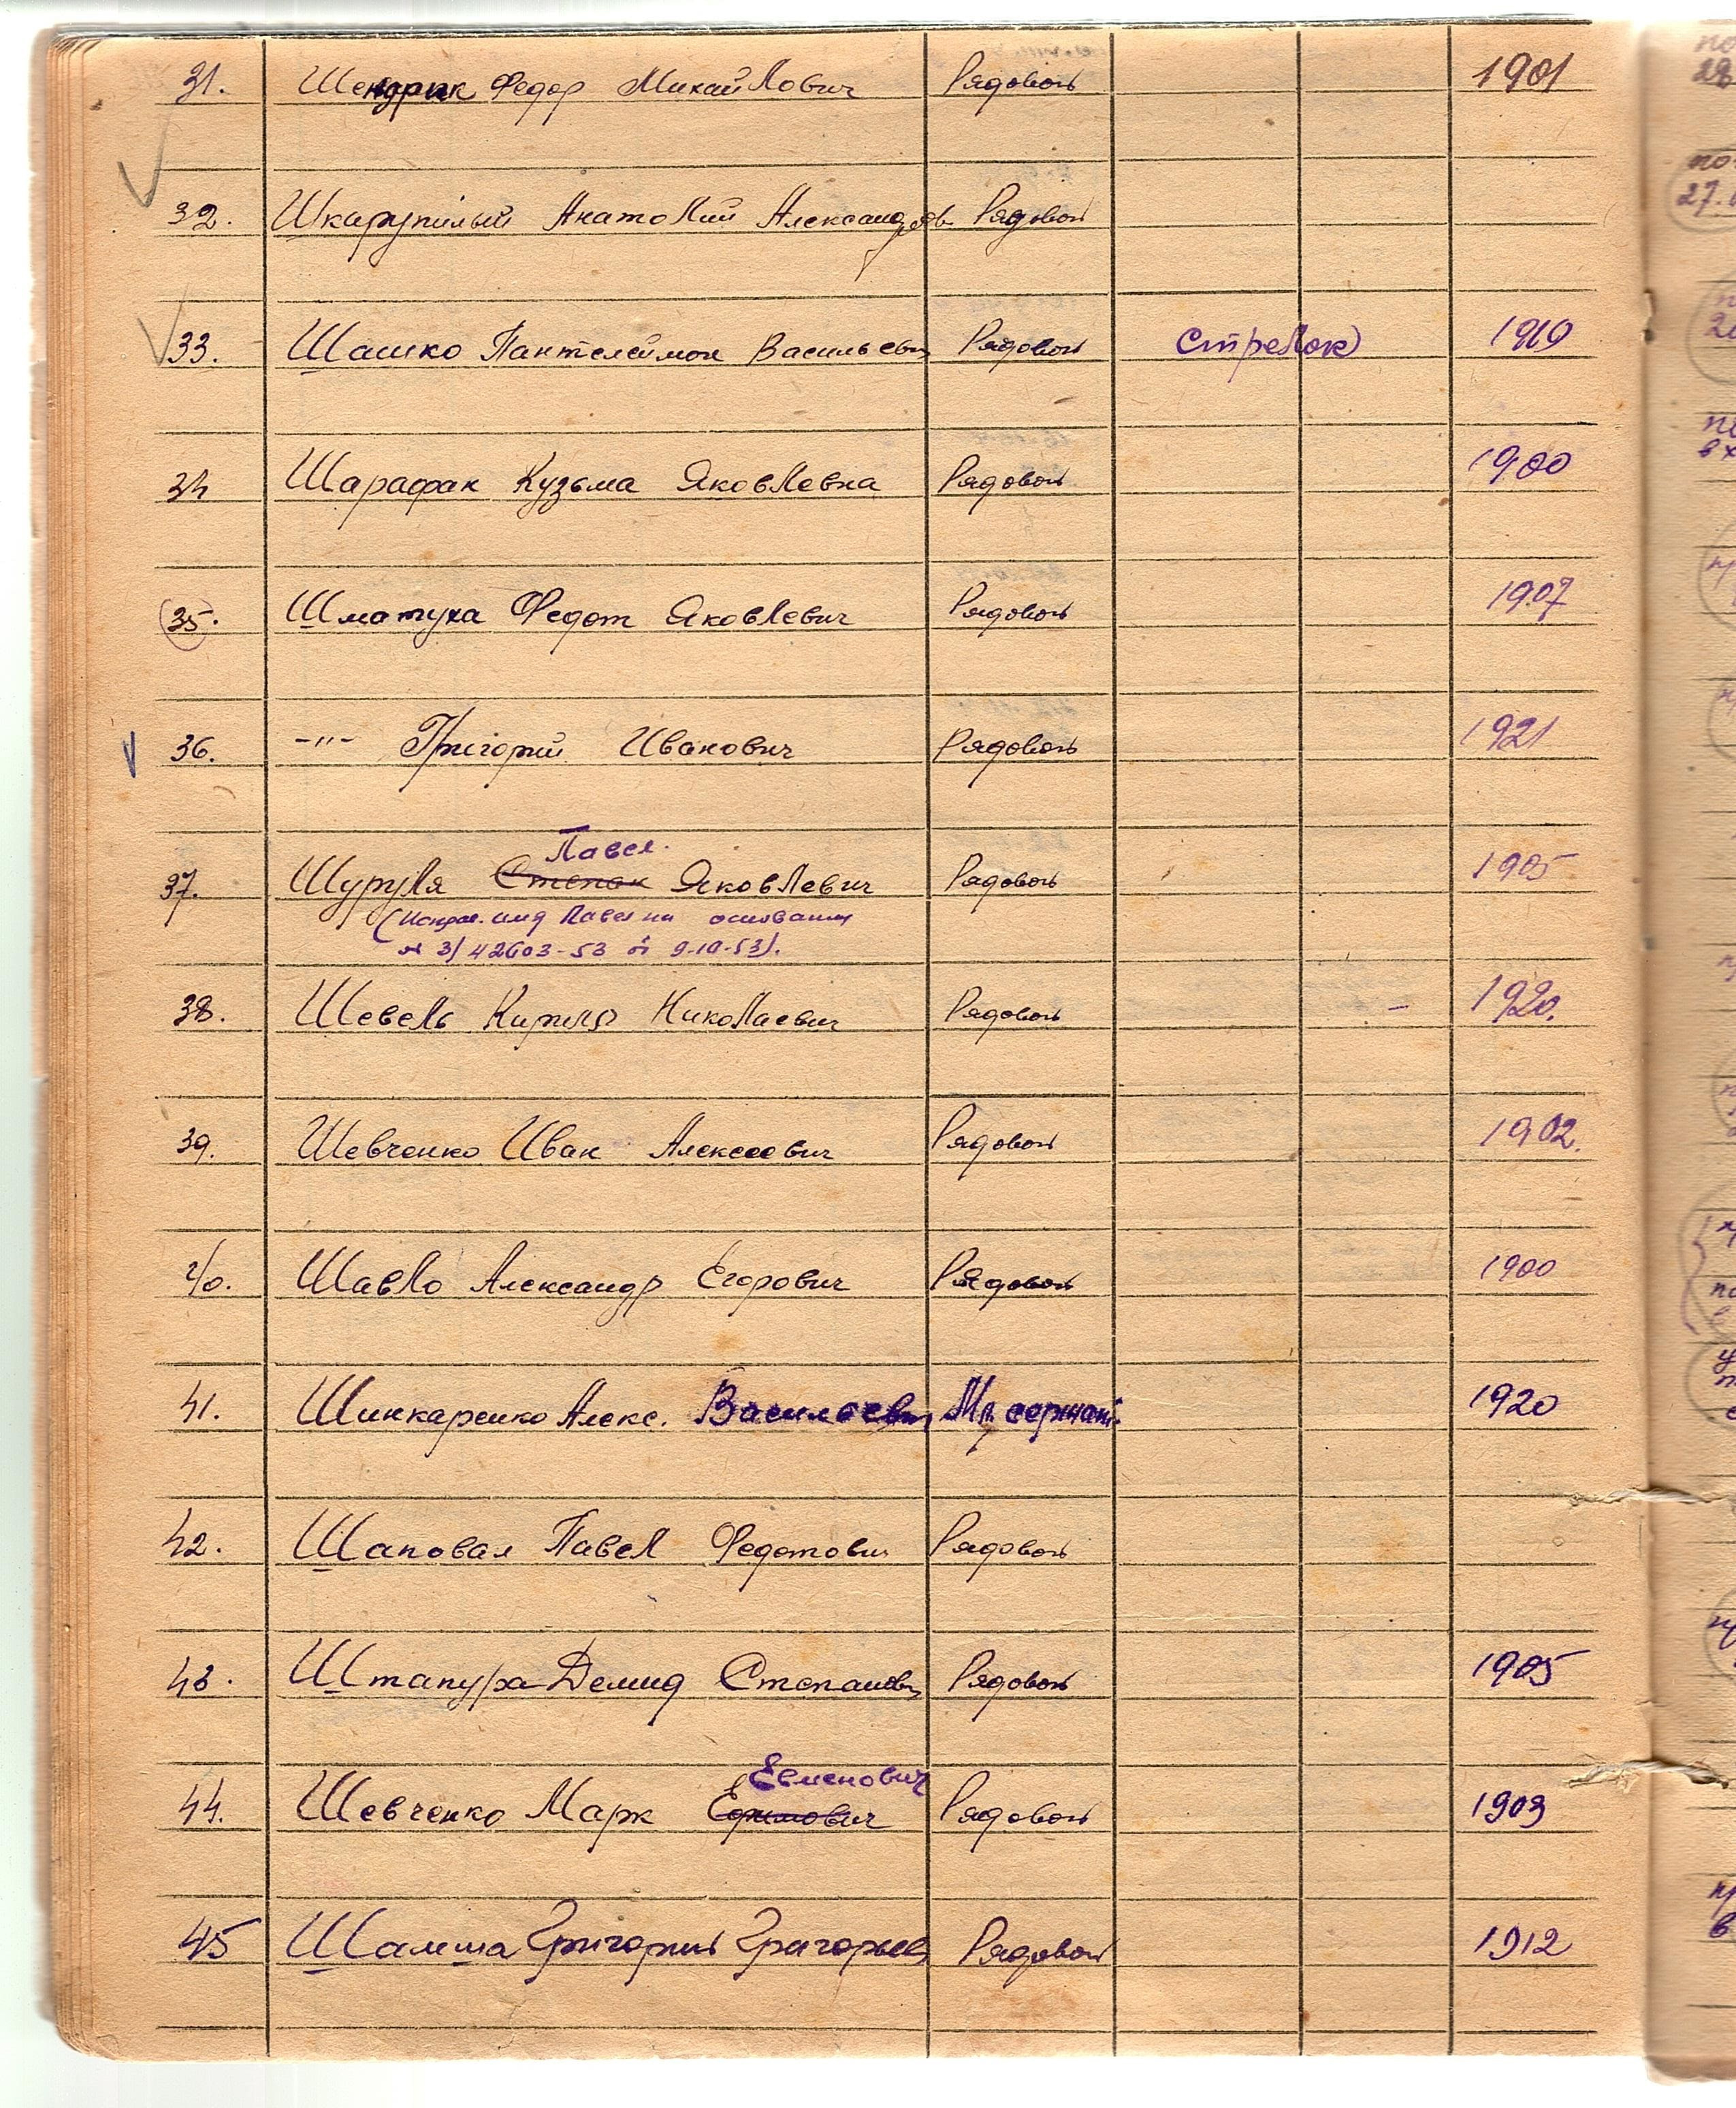 31. Шендрик Федор Михайлович Рядовой 1901
32. Шкарупилый Анатолий Александров. Рядовой
33. Шашко Пантелеймон Васильевич Рядовой Стрелок 1919
34 Шарафан Кузьма Яковлевна Рядовой 1900
35. Шматуха Федот Яковлевич Рядовой 1907
36. -"- Григорий Иванович Рядовой 1921
Павел.
37. Шуруля Степан Яковлевич Рядовой 1905
(Исправ. имя Павел на основании
№ 3/42603-53 от 9.10.53).
38. Шевель Кирилл Николаевич Рядовой - 1920.
39. Шевченко Иван Алексеевич Рядовой 1902.
40. Шавло Александр Егорович Рядовой 1900
41. Шинкаренко Алекс. Васильевич Мл. сержант. 1920
42. Шаповал Павел Федотович Рядовой
43. Штапура Демид Степанович Рядовой 1905
Евменович
44. Шевченко Марк Ефимович Рядовой 1903
45 Шамша Григорий Григорьев Рядовой 1912